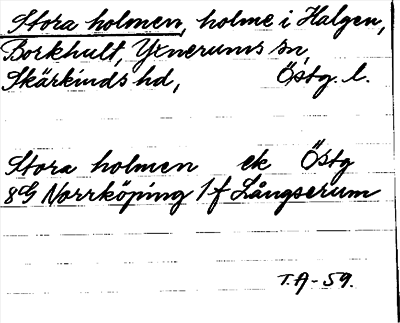 Stora holmen, holme i Halgen,
Borkhult, Yxnerums sn,
Skärkinds hd, Östg. l.
Stora holmen ek Östg
8G Norrköping 1f Långserum
T.A-59.